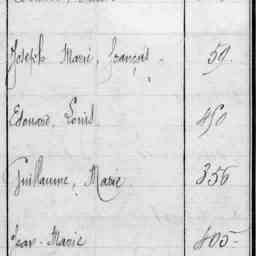 Joseph Marie, François 59.
Edouard, Louis 450
Guillaume, Marie 356
Jean-Marie 405-